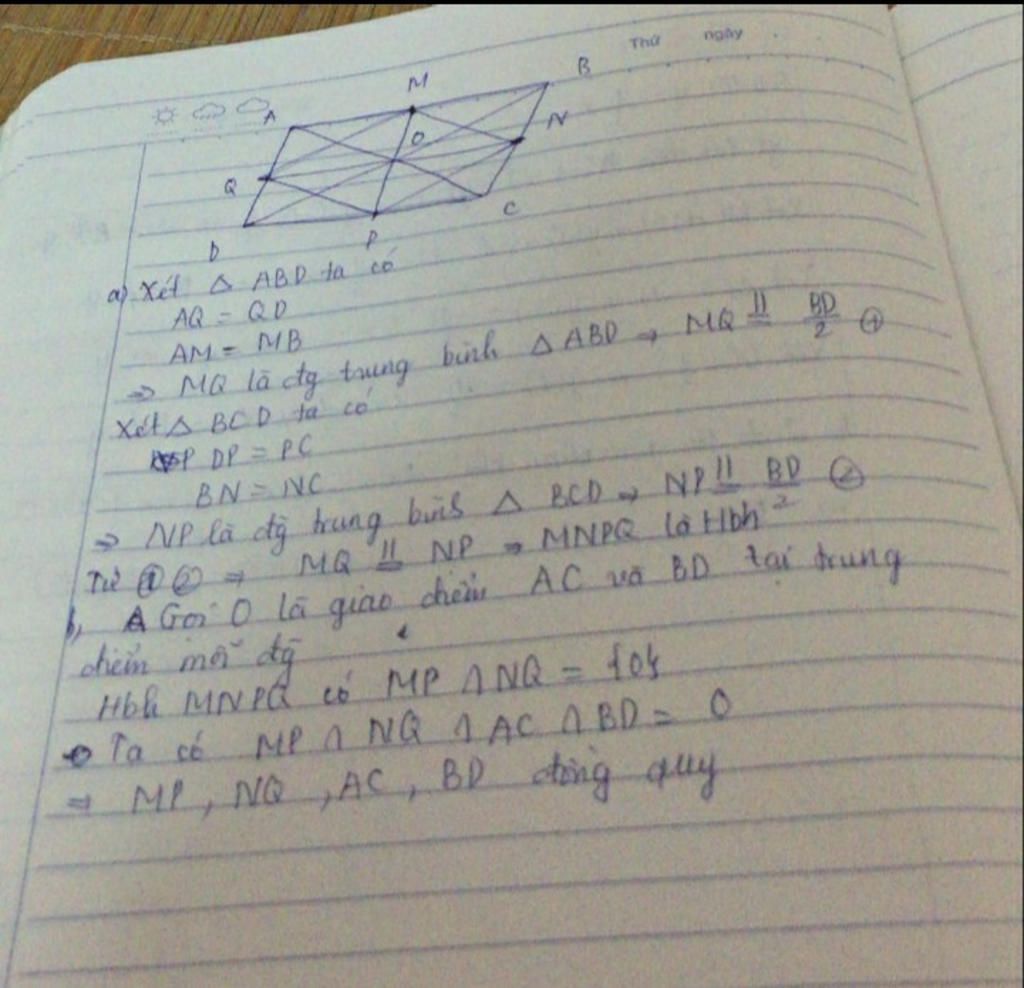 Thứ ngày
M
B
A
O
N
Q
C
D
P
a) Xét △ ABD ta có
AQ = QD
AM = MB
=> MQ là đg trung bình △ ABD → MQ //= BD/2 ①
Xét △ BCD ta có
DP = PC
BN = NC
=> NP là đg trung bình △ BCD → NP //= BD/2 ②
Từ ① ② => MQ //= NP → MNPQ là Hbh
b, Gọi O là giao điểm AC và BD tại trung
điểm mỗi đg
Hbh MNPQ có MP ∩ NQ = {O}
Ta có MP ∩ NQ ∩ AC ∩ BD = O
=> MP, NQ, AC, BD đồng quy